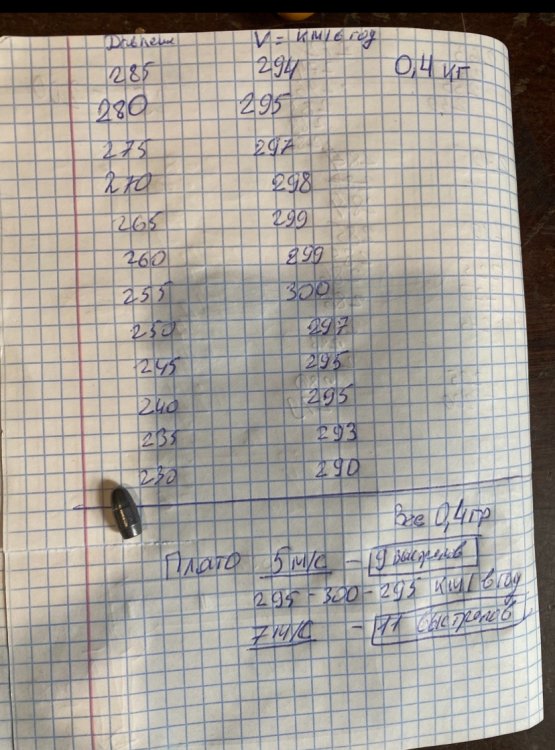 Давлен V = КМ/в год
285 294 0,4 кг
280 295
275 297
270 298
265 299
260 299
255 300
250 297
245 295
240 295
235 293
230 290
Вес 0,4гр
Плато 5 м/с - 9 выстрелов
295 - 300 - 295 км/в год
7 м/с - 11 выстрелов